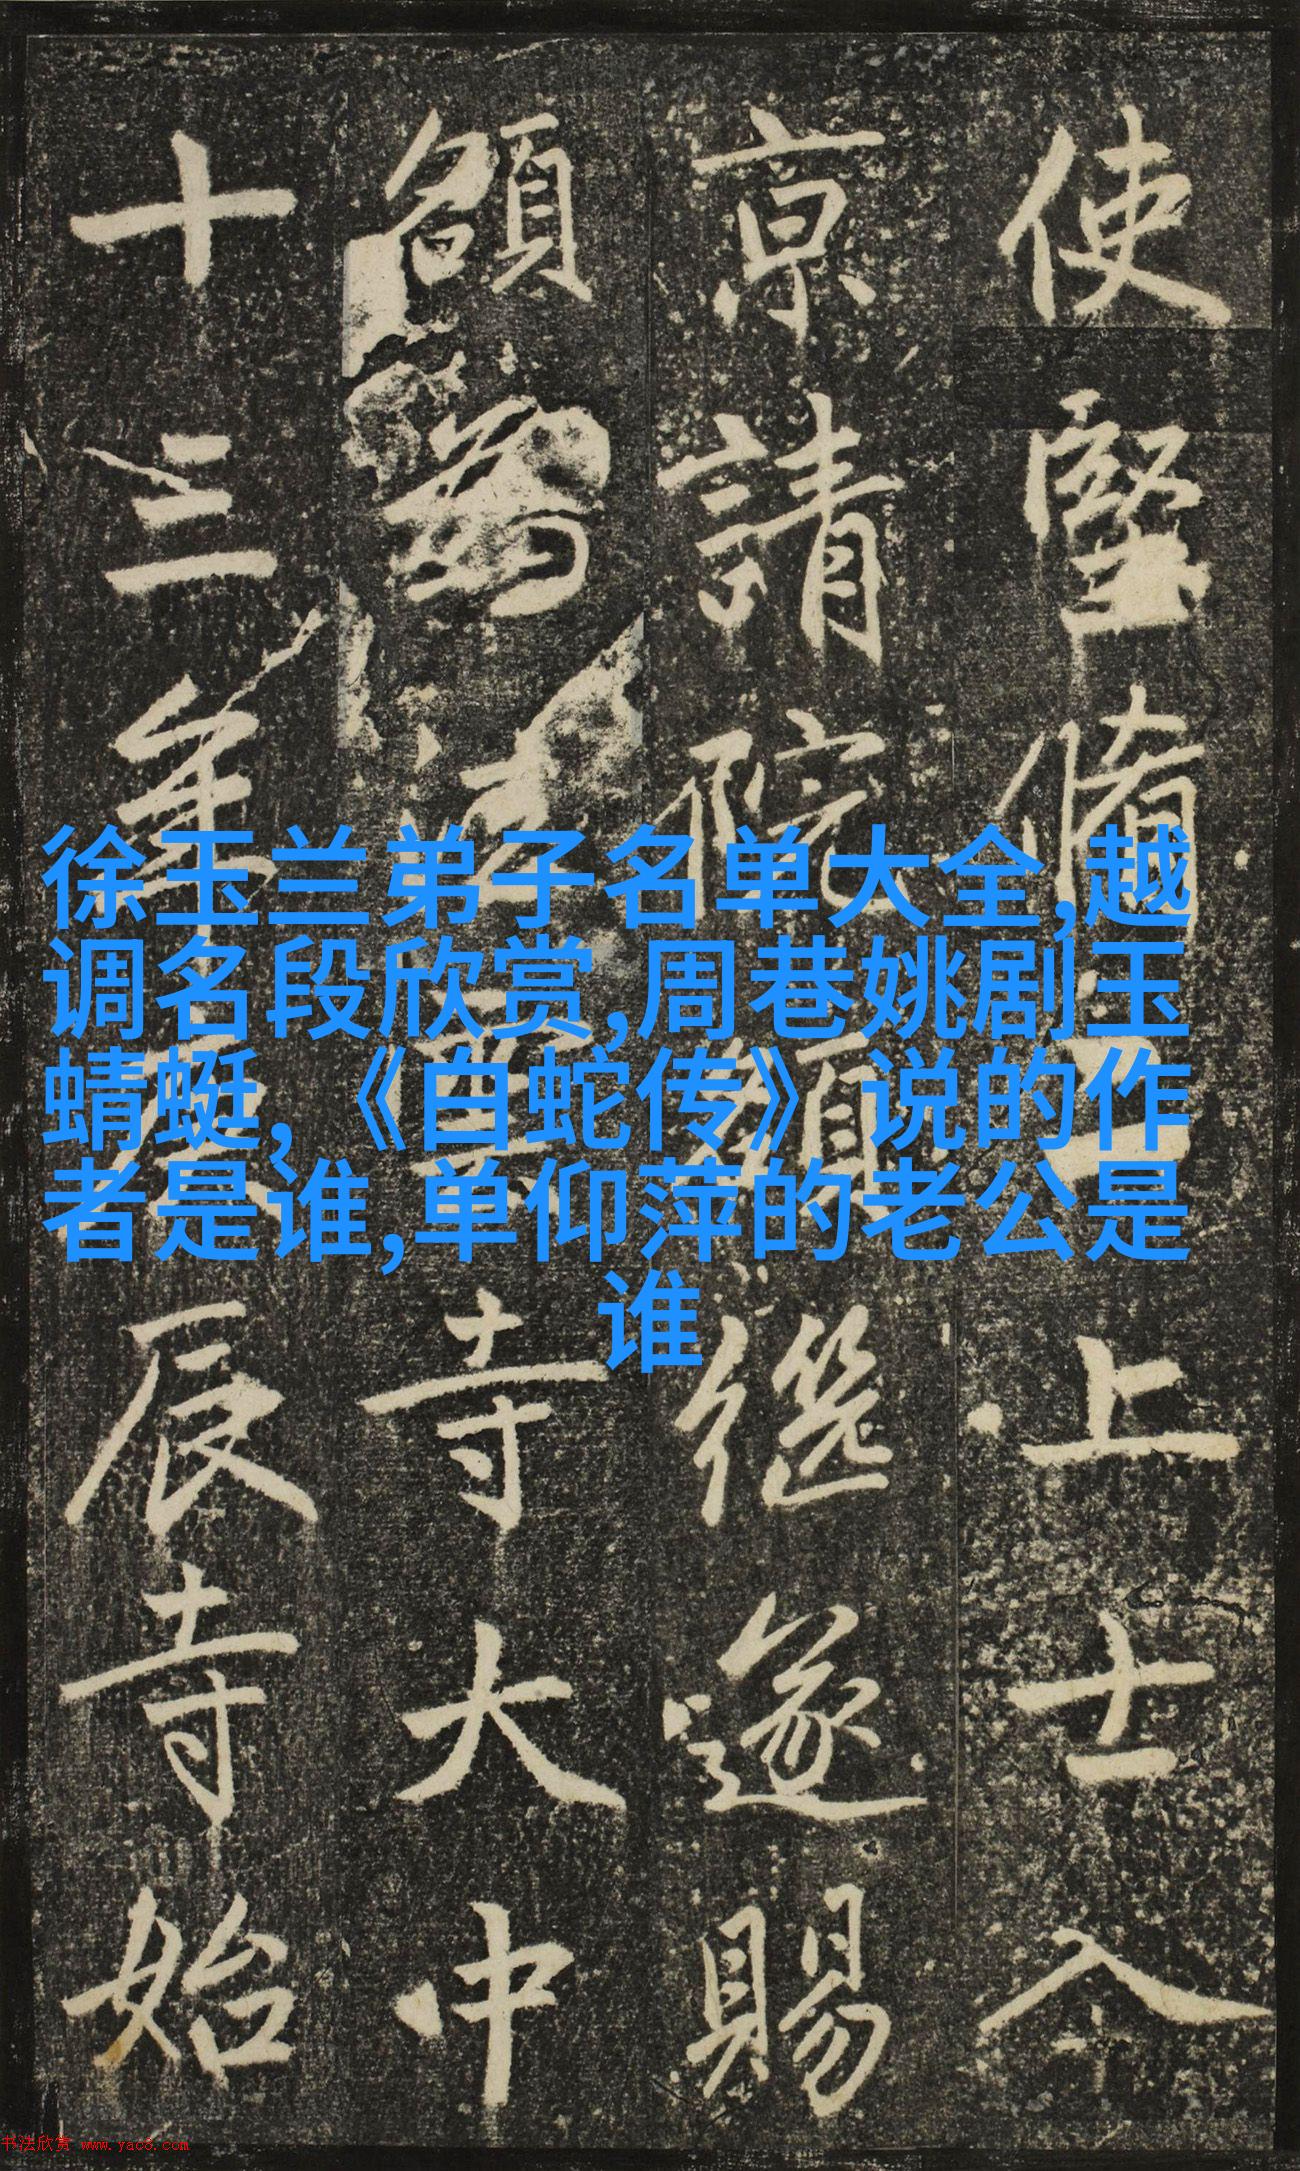 使堅脩上士入
京請院額繼遂賜
額為寺大中
十三年辰寺始
徐玉兰弟子名单大全,越
调名段欣赏,周巷姚剧玉
蜻蜓,《白蛇传》说的作
者是谁,单仰萍的老公是
谁
书法欣赏 www.yac8.com